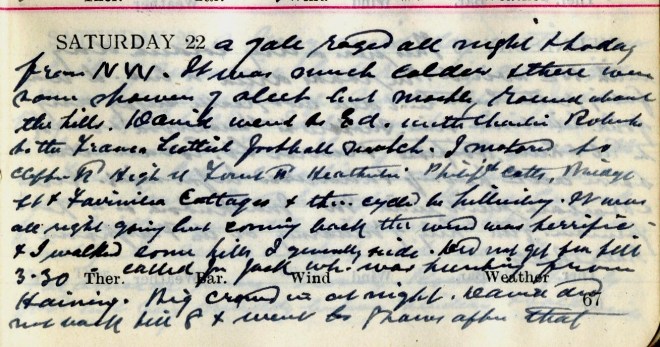 SATURDAY 22 a gale raged all night & today
from NW. It was much colder & there were
some showers of sleet but mostly round about
the hills. David went to Ed. with Charlie Roberts
to the France Scottish football match. I motored to
High St Forest Rd Heatherlie Philiph Cotts, Bridge
St & Cottages & then cycled to . It was
all right going but coming back the wind was terrific
& I walked some hills I generally ride. Did not get in till
3-30 called on Jack who was from
Ther. Bar. Wind Weather
Haining. Big crowd in at night. David did 67
not back till 8 & went to after that